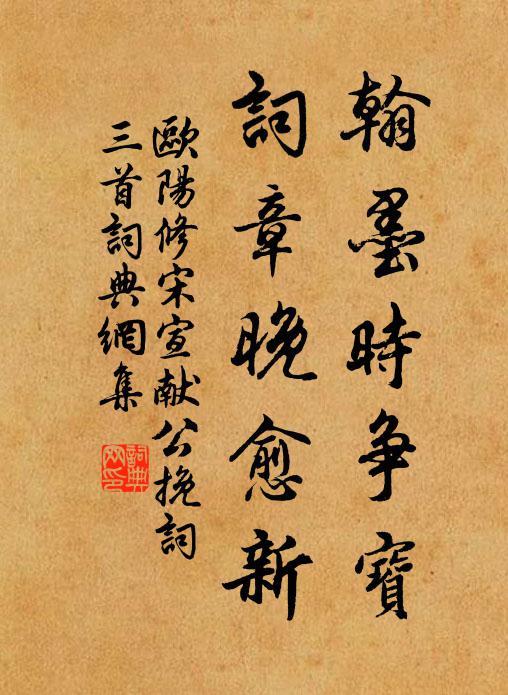 翰墨時争寶
詞章晚愈新
歐陽修宋宣献公挽詞
三首詞典網集
詞典
网印